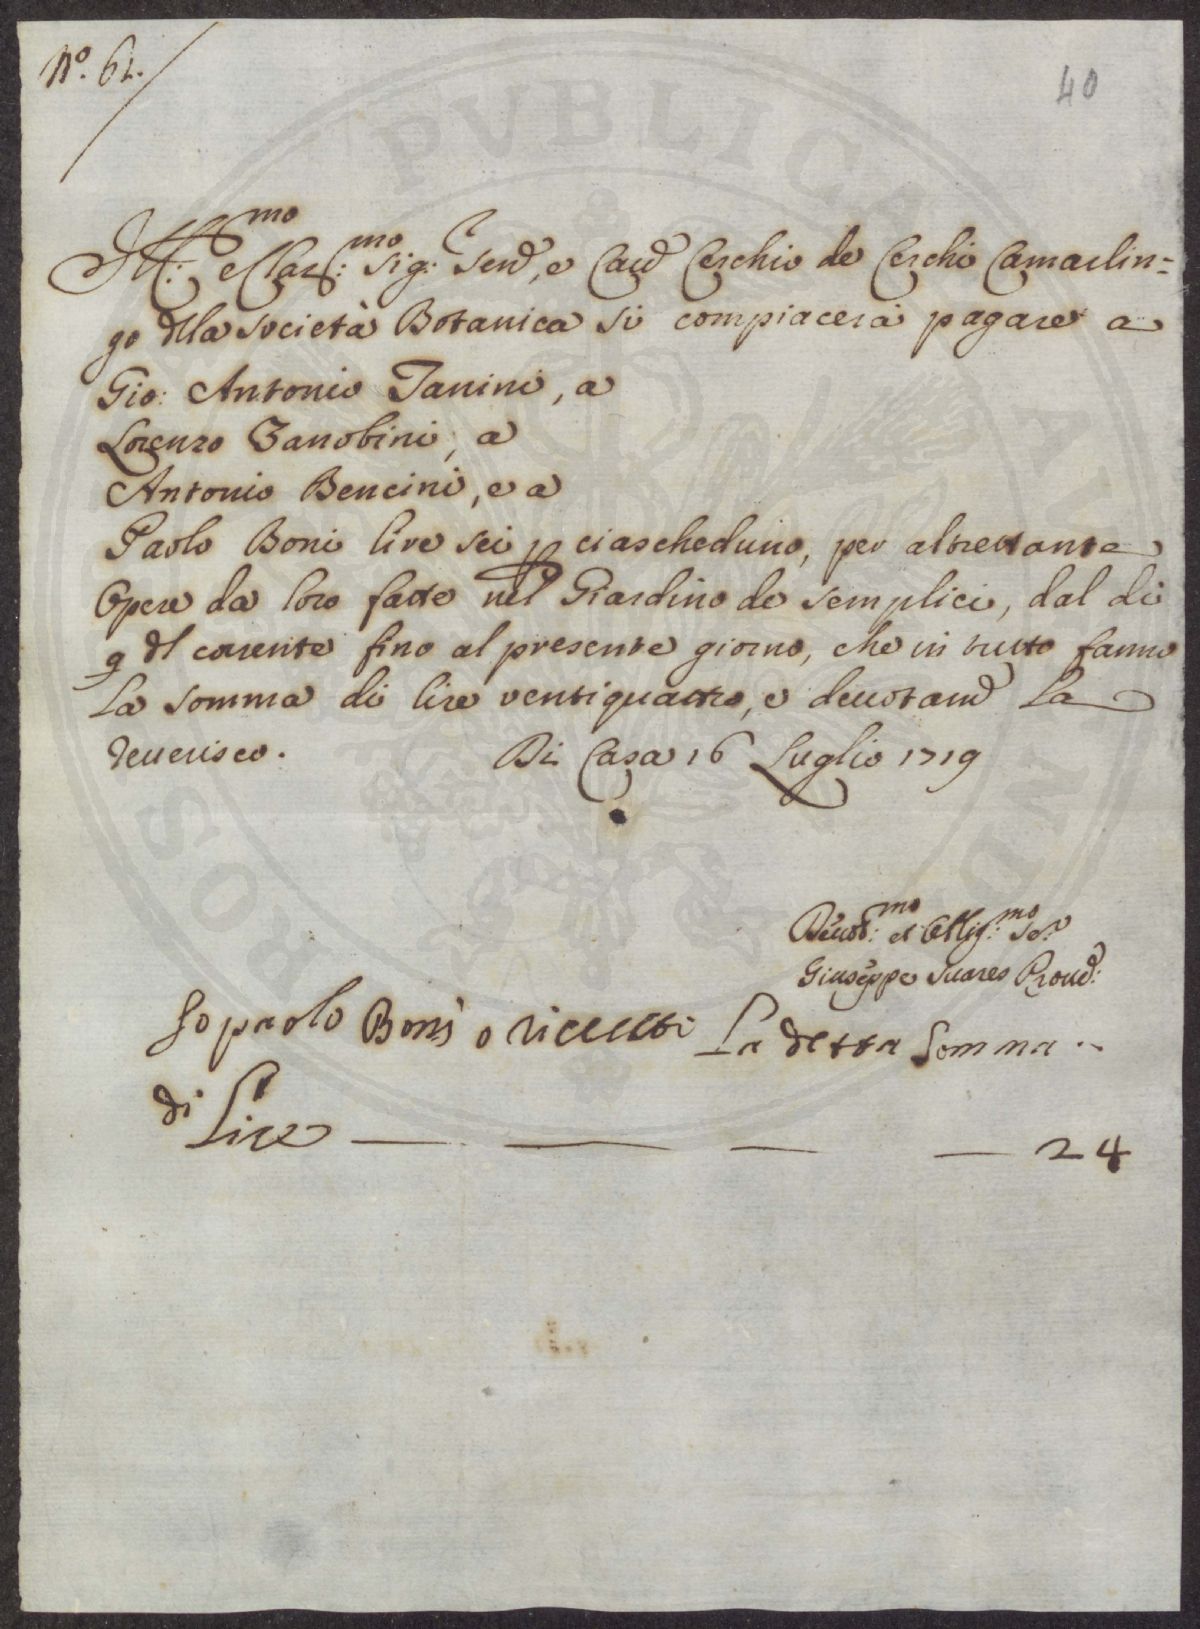 N.º 61.
40
Ill:mo e Clar:mo Sig:r Sen.e, e Cav.e Cerchio de Cerchi Camarlin=
go dlla società Botanica si compiacerà pagare a
Gio: Antonio Tanini, a
Lorenzo Zanobini, a
Antonio Bencini, e a
Paolo Boni lire sei p ciascheduno, per altrettante
Opere da loro fatte nel Giardino de semplici, dal dì
9 dl corrente fino al presente giorno, che in tutto fanno
La somma di lire ventiquattro, e devotam.e La
reverisco. Di Casa 16 Luglio 1719
Devot:mo et Obblig:mo Se.r
Giuseppe Suares Proved:
Io paolo Boni o riceuto La detta Somma
di Lire — — — — 24
PVBLICA